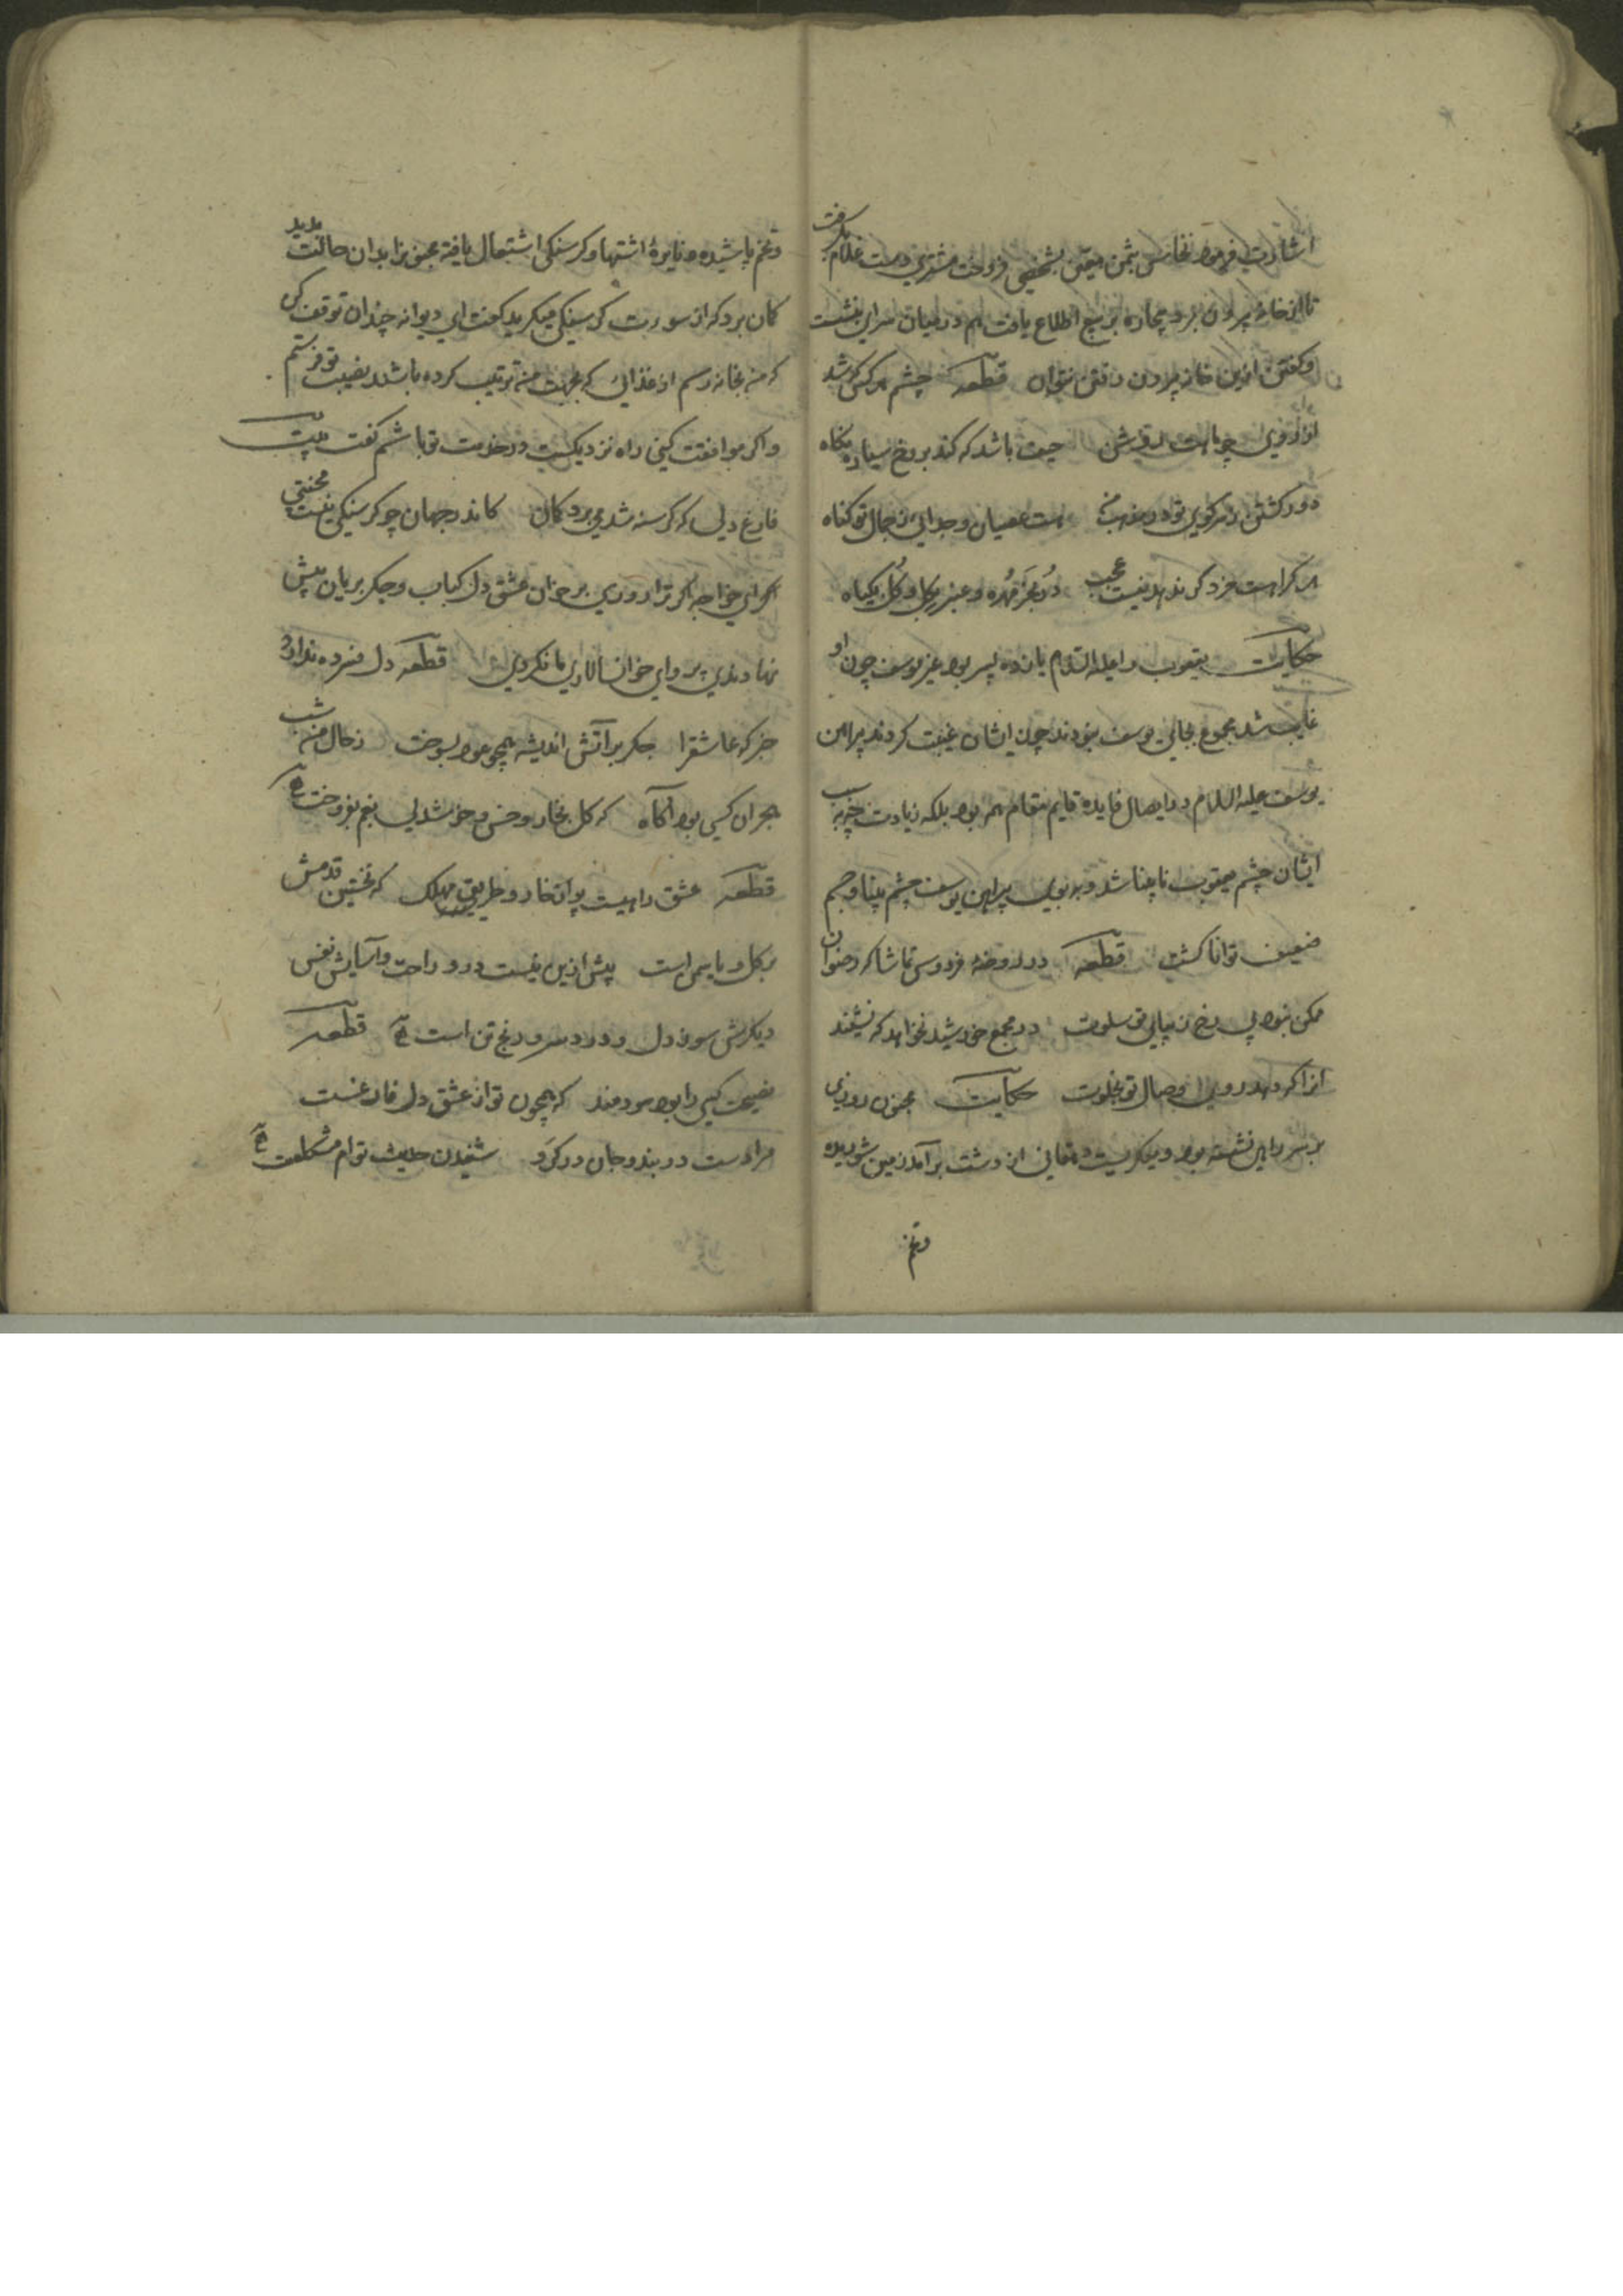 اشارت فرمود نخاس بثمن معین بشخصی فروخت مشتری دست غلام بگرفت
تا از خانه بیرون برد بیچاره بر بیع اطلاع یافت هم در میان سرای بنشست
و گفتن ازین خانه برون رفتن نتوان قطعه چشم هر کس که شد
از روی چو ماهت روشن حیف باشد که کند بر رخ سیاره نگاه
دور گشتن ز سر کوی تو در مذهب من هست عصیان و جدایی ز جمال تو گناه
هر کرا هست خرد گر ندهد نیست عجب در بخرمهره و عنبر بگل و گل بگیاه
حکایت یعقوب را علیه السلام یازده پسر بود غیر یوسف چون او
غایب شد مجموع بجای یوسف نبودند چون ایشان غیبت کردند پیراهن
یوسف علیه السلام در ایصال فایده قایم مقام همه بود بلکه زیادت چه بسبب
ایشان چشم یعقوب نابینا شد و به بوی پیراهن یوسف چشم بینا و جسم
ضعیف توانا گشت قطعه در روضه فردوس تماشاگه رضوان
ممکن نبود بی رخ زیبای تو سلوت در مجمع خورشید نخواهد که نشیند
انرا که دهد روی وصال تو بخلوت حکایت مجنون روزی
بر سر راهی نشسته بود و میگریست دهقانی از دشت برآمد زمین شوریده
وتخم
وتخم پاشیده و نایرهٔ اشتها و گرسنگی اشتعال یافته مجنون را بدان حالت بدید
گمان برد که از سورت گرسنگی میگرید گفت ای دیوانه چندان توقف کن
که من بخانه رسم از غذایی که بجهت من ترتیب کرده باشند نصیبت توفرستم
و اگر موافقت کنی راه نزدیکست در خدمت تو باشم گفت بیت
فارغ دلی که گرسنه شد می برد گمان کاندر جهان چو گرسنگی نیست محنتی
ای خواجه اگر ترا روزی بر خوان عشق دل کباب و جگر بریان پیش
نهادندی پروای خوانسالاری ما نکردی قطعه دل فسرده ندارد
خبر که عاشقرا جگر بر آتش اندیشه همچو عود بسوخت ز حال من شب
هجران کسی بود آگاه که گل بخار و خس و خوشدلی بغم بفروخت
قطعه عشق راهیست پر از خار و طریقی مهلک که نخستین قدمش
بر گل و یاسمن است پیش ازین نیست درو راحت و آسایش نفس
دیگرش سوز دل و درد سر و رنج تن است قطعه
نصیحت کسی را بود سودمند که همچون تو از عشق دل فارغست
مرادست در بند و جان در گرو شنیدن حدیث توام مشکلست